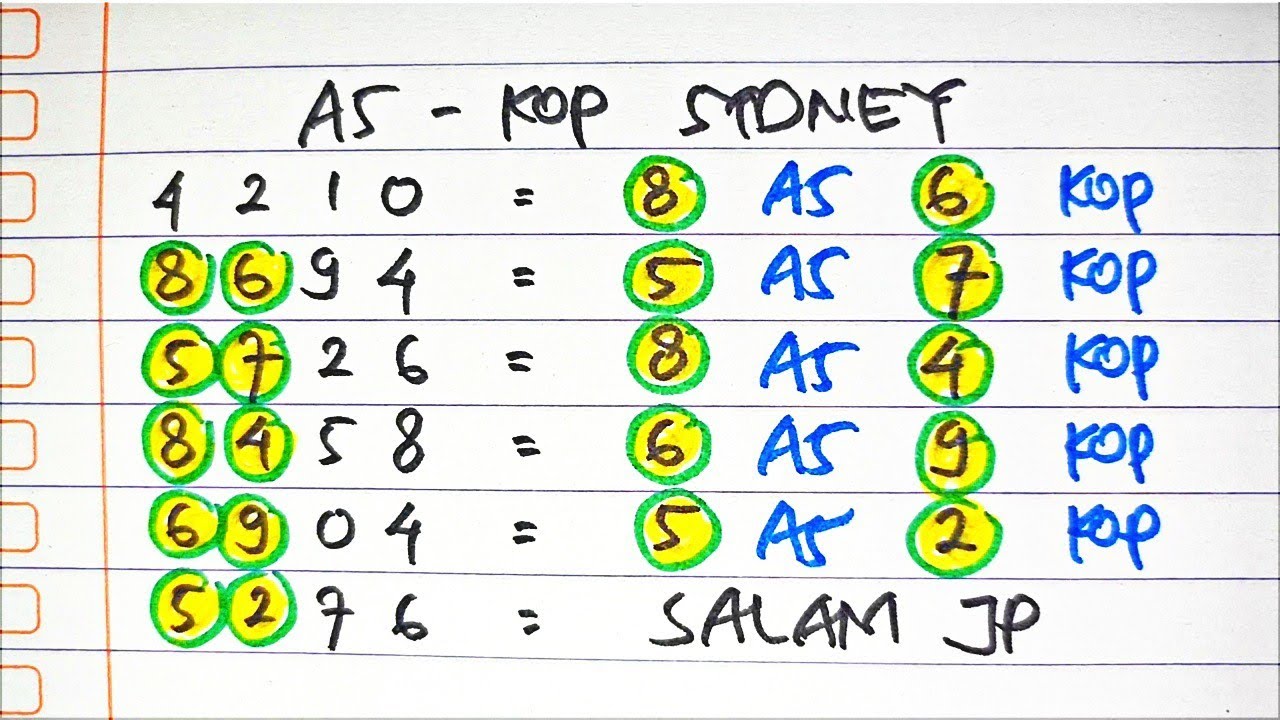 AS - KOP SYDNEY
4 2 1 0 = 8 AS 6 KOP
8 6 9 4 = 5 AS 7 KOP
5 7 2 6 = 8 AS 4 KOP
8 4 5 8 = 6 AS 9 KOP
6 9 0 4 = 5 AS 2 KOP
5 2 7 6 = SALAM JP